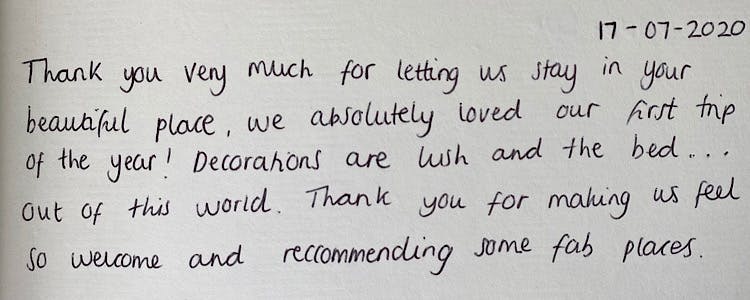 17-07-2020
Thank you very much for letting us stay in your
beautiful place, we absolutely loved our first trip
of the year! Decorations are lush and the bed...
out of this world. Thank you for making us feel
so welcome and reccommending some fab places.